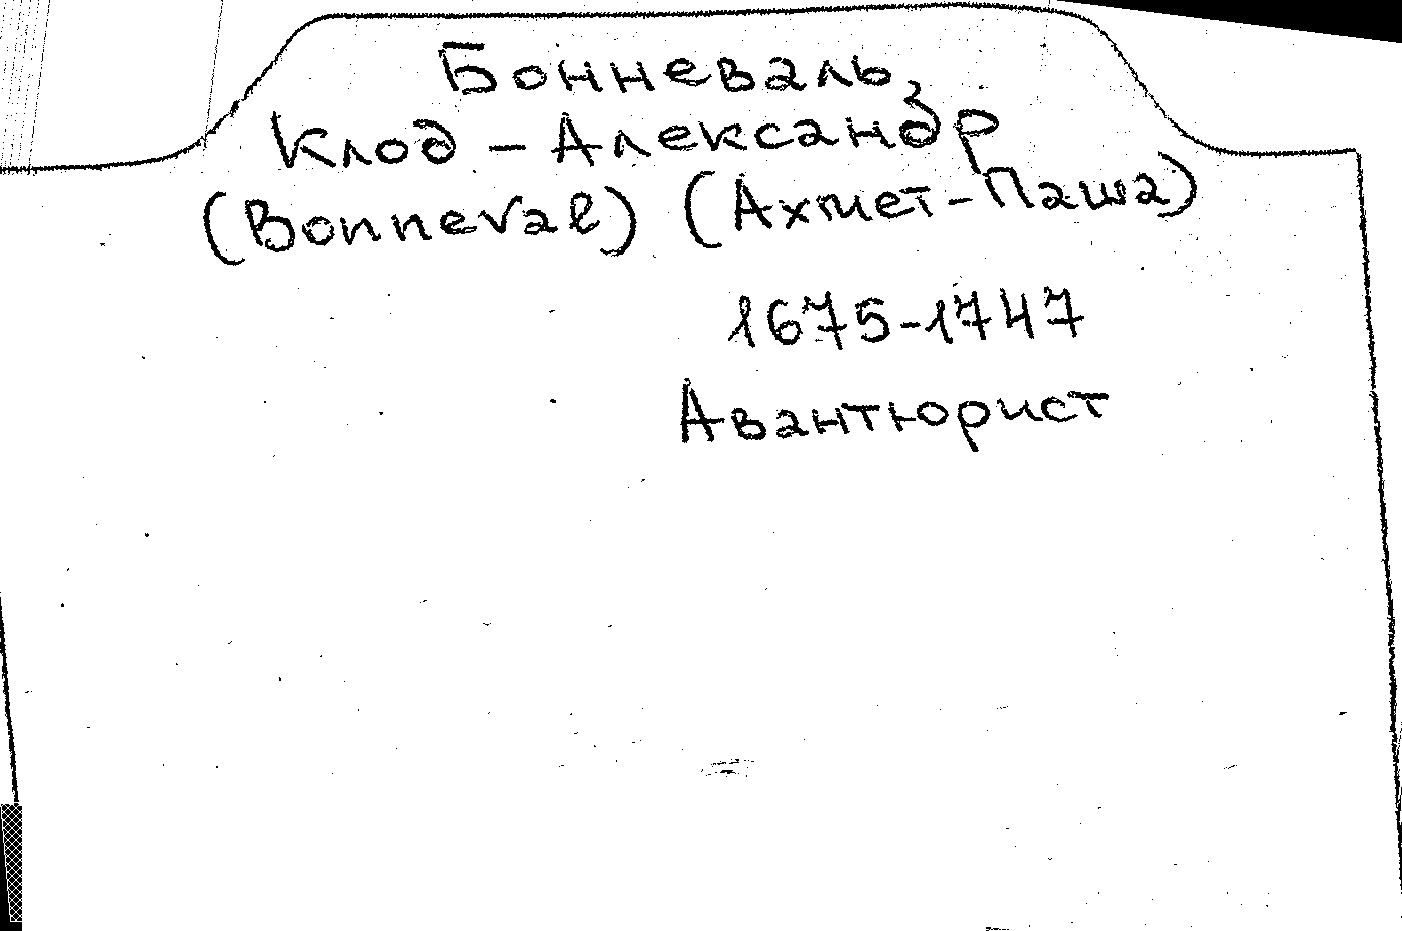 Бонневаль,
Клод - Александр
(Bonneval) (Ахмет-Паша)
1675-1747
Авантюрист